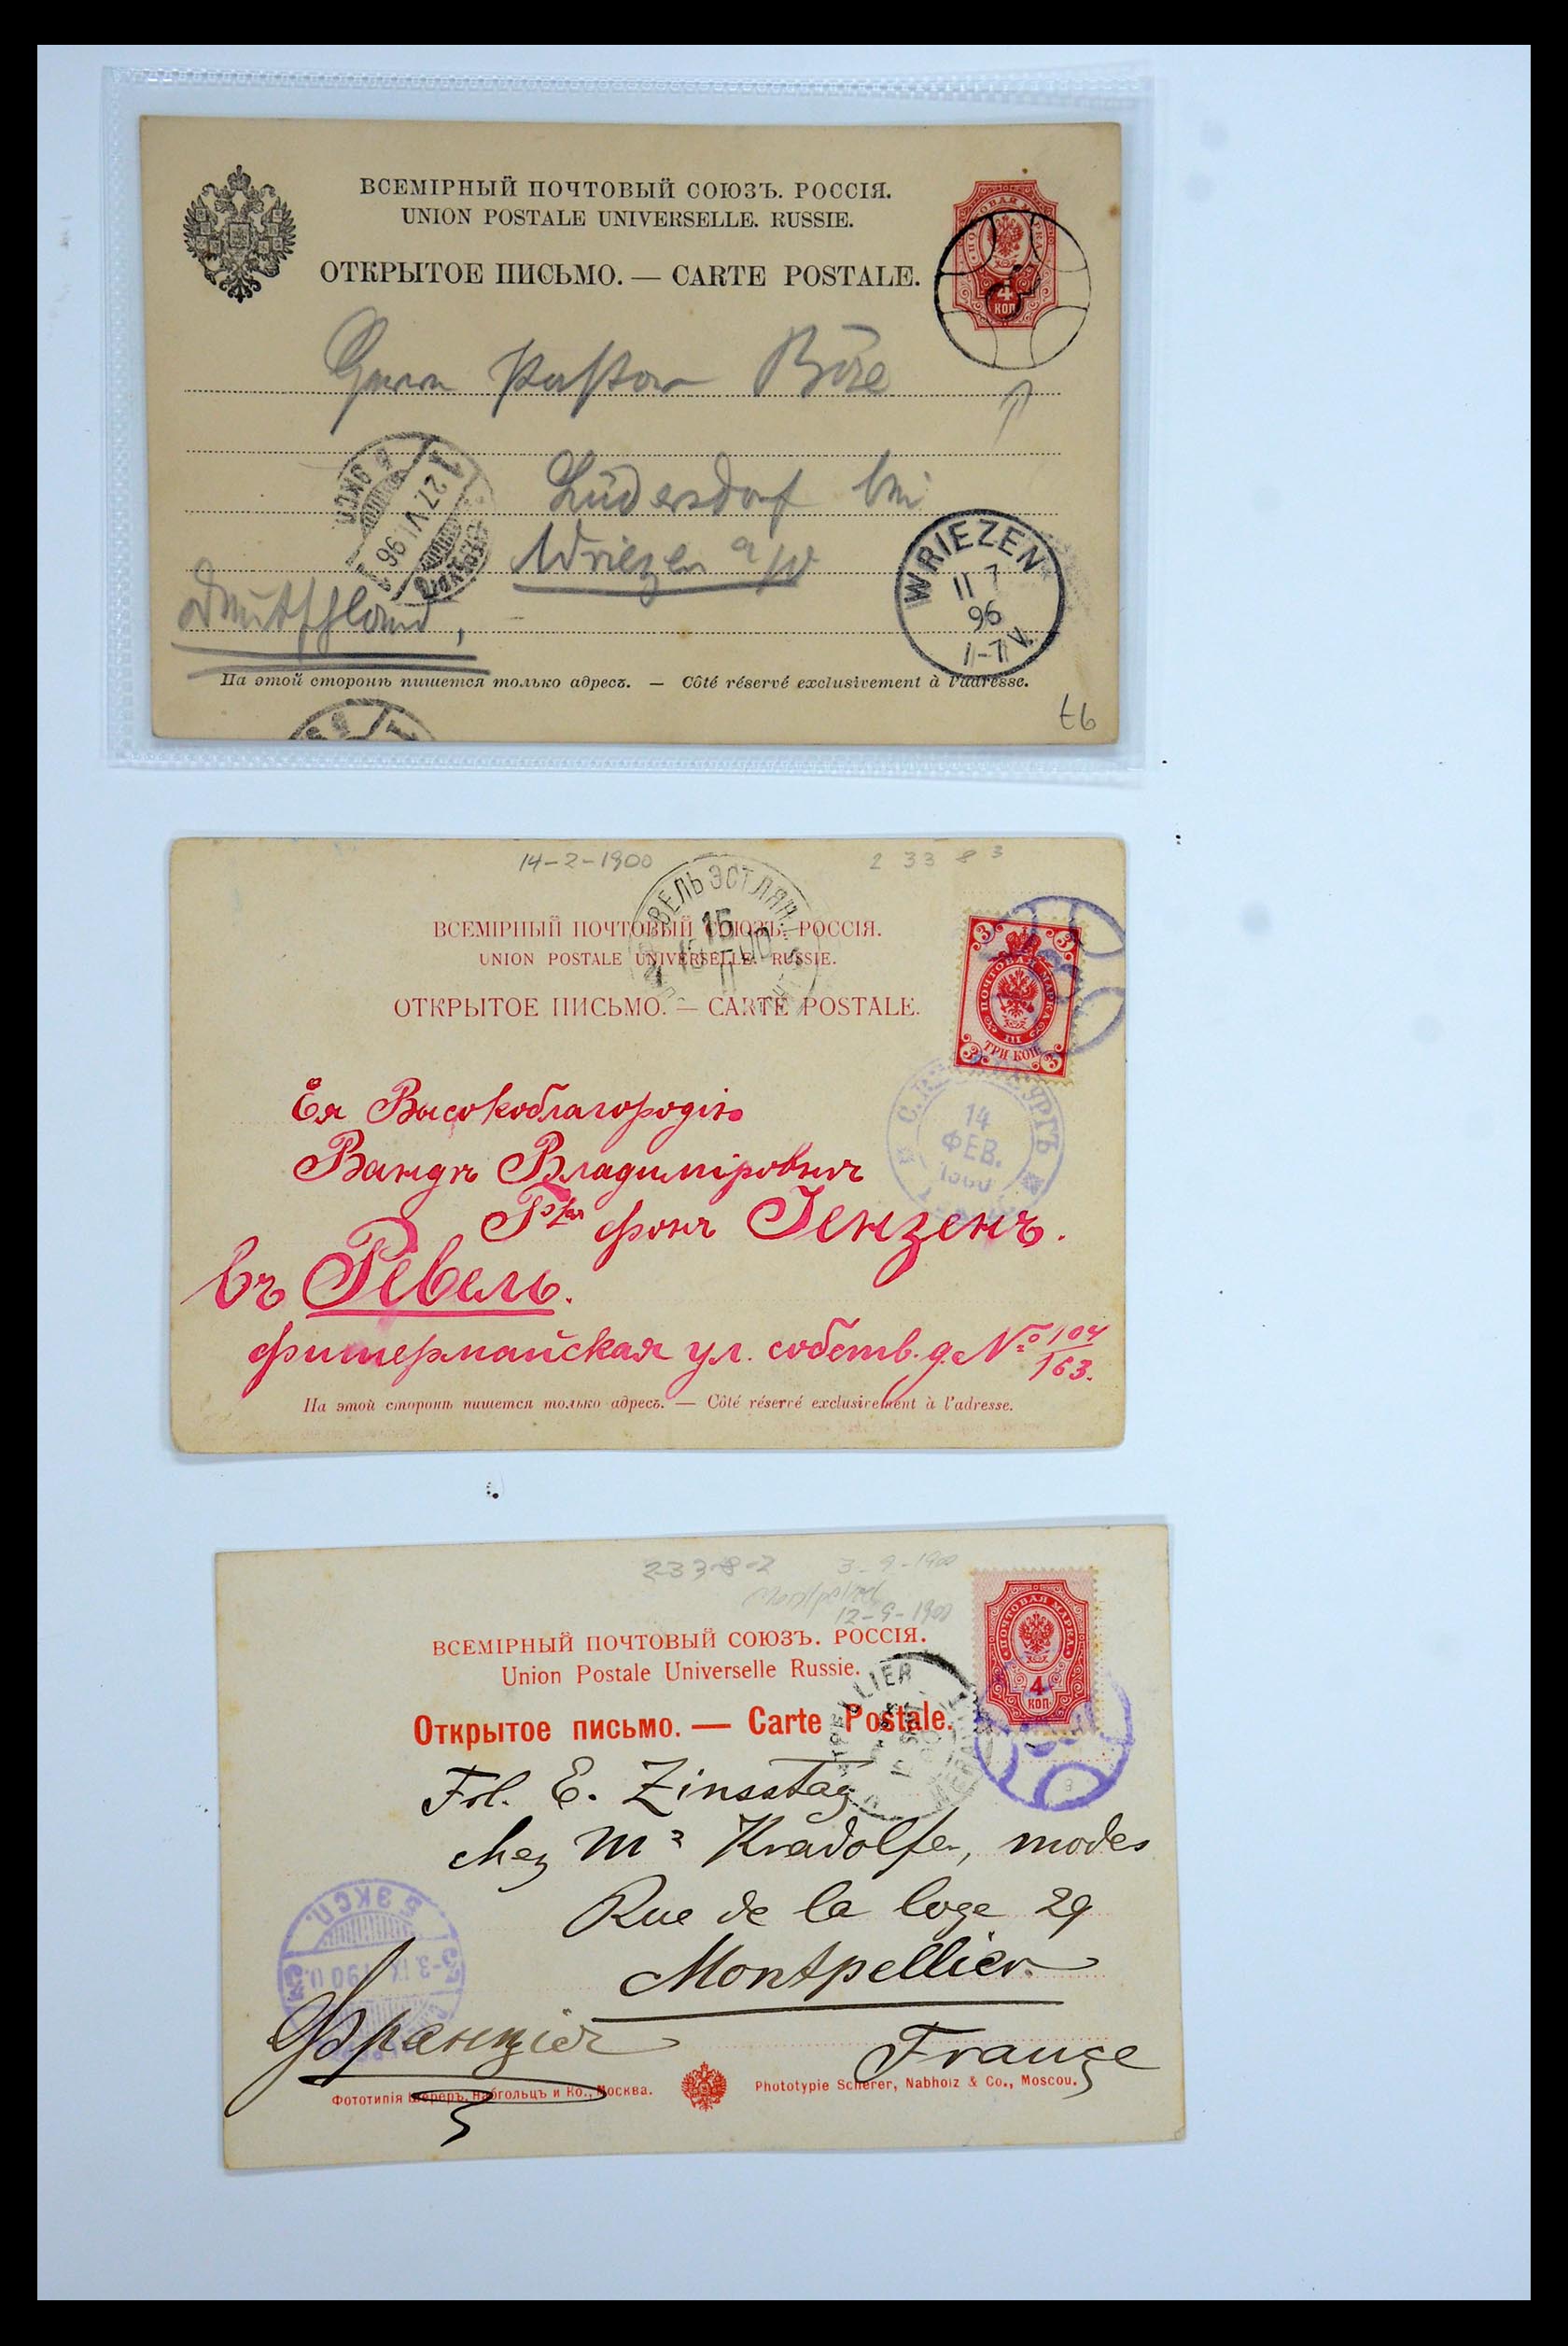 ВСЕМІРНЫЙ ПОЧТОВЫЙ СОЮЗЪ. РОССІЯ.
UNION POSTALE UNIVERSELLE. RUSSIE.
ОТКРЫТОЕ ПИСЬМО. — CARTE POSTALE.
4
КОП
Herrn Pastor
Lüdersdorf bei
Wriezen a/W
Deutschland,
27 VI 96
WRIEZEN
11 7
96
1-7 V.
На этой сторонѣ пишется только адресъ. — Côté réservé exclusivement à l'adresse.
14-2-1900
2 33 8 3
ВСЕМІРНЫЙ ПОЧТОВЫЙ СОЮЗЪ. РОССІЯ.
UNION POSTALE UNIVERSELLE. RUSSIE.
ОТКРЫТОЕ ПИСЬМО. — CARTE POSTALE.
ПОЧТОВАЯ МАРКА
ТРИ КОП.
14
ФЕВ.
1900
Ея Высокоблагородію
Вандѣ Владиміровнѣ
фонъ Іензенъ.
въ Ревель.
ул. собств. д. № 104/163.
На этой сторонѣ пишется только адресъ. — Côté réservé exclusivement à l'adresse.
233-8-2
3-9-1900
12-9-1900
ВСЕМІРНЫЙ ПОЧТОВЫЙ СОЮЗЪ. РОССІЯ.
Union Postale Universelle Russie.
Открытое письмо. — Carte Postale.
ПОЧТОВАЯ МАРКА
4
КОП
Frl. E. Zinsstag
chez Mr Kradolfer, modes
Rue de la loge 29
Montpellier
Франція
France
5 ЭКСП.
Фототипія Шереръ, Набгольцъ и Ко., Москва.
Phototypie Scherer, Nabholz & Co., Moscou.